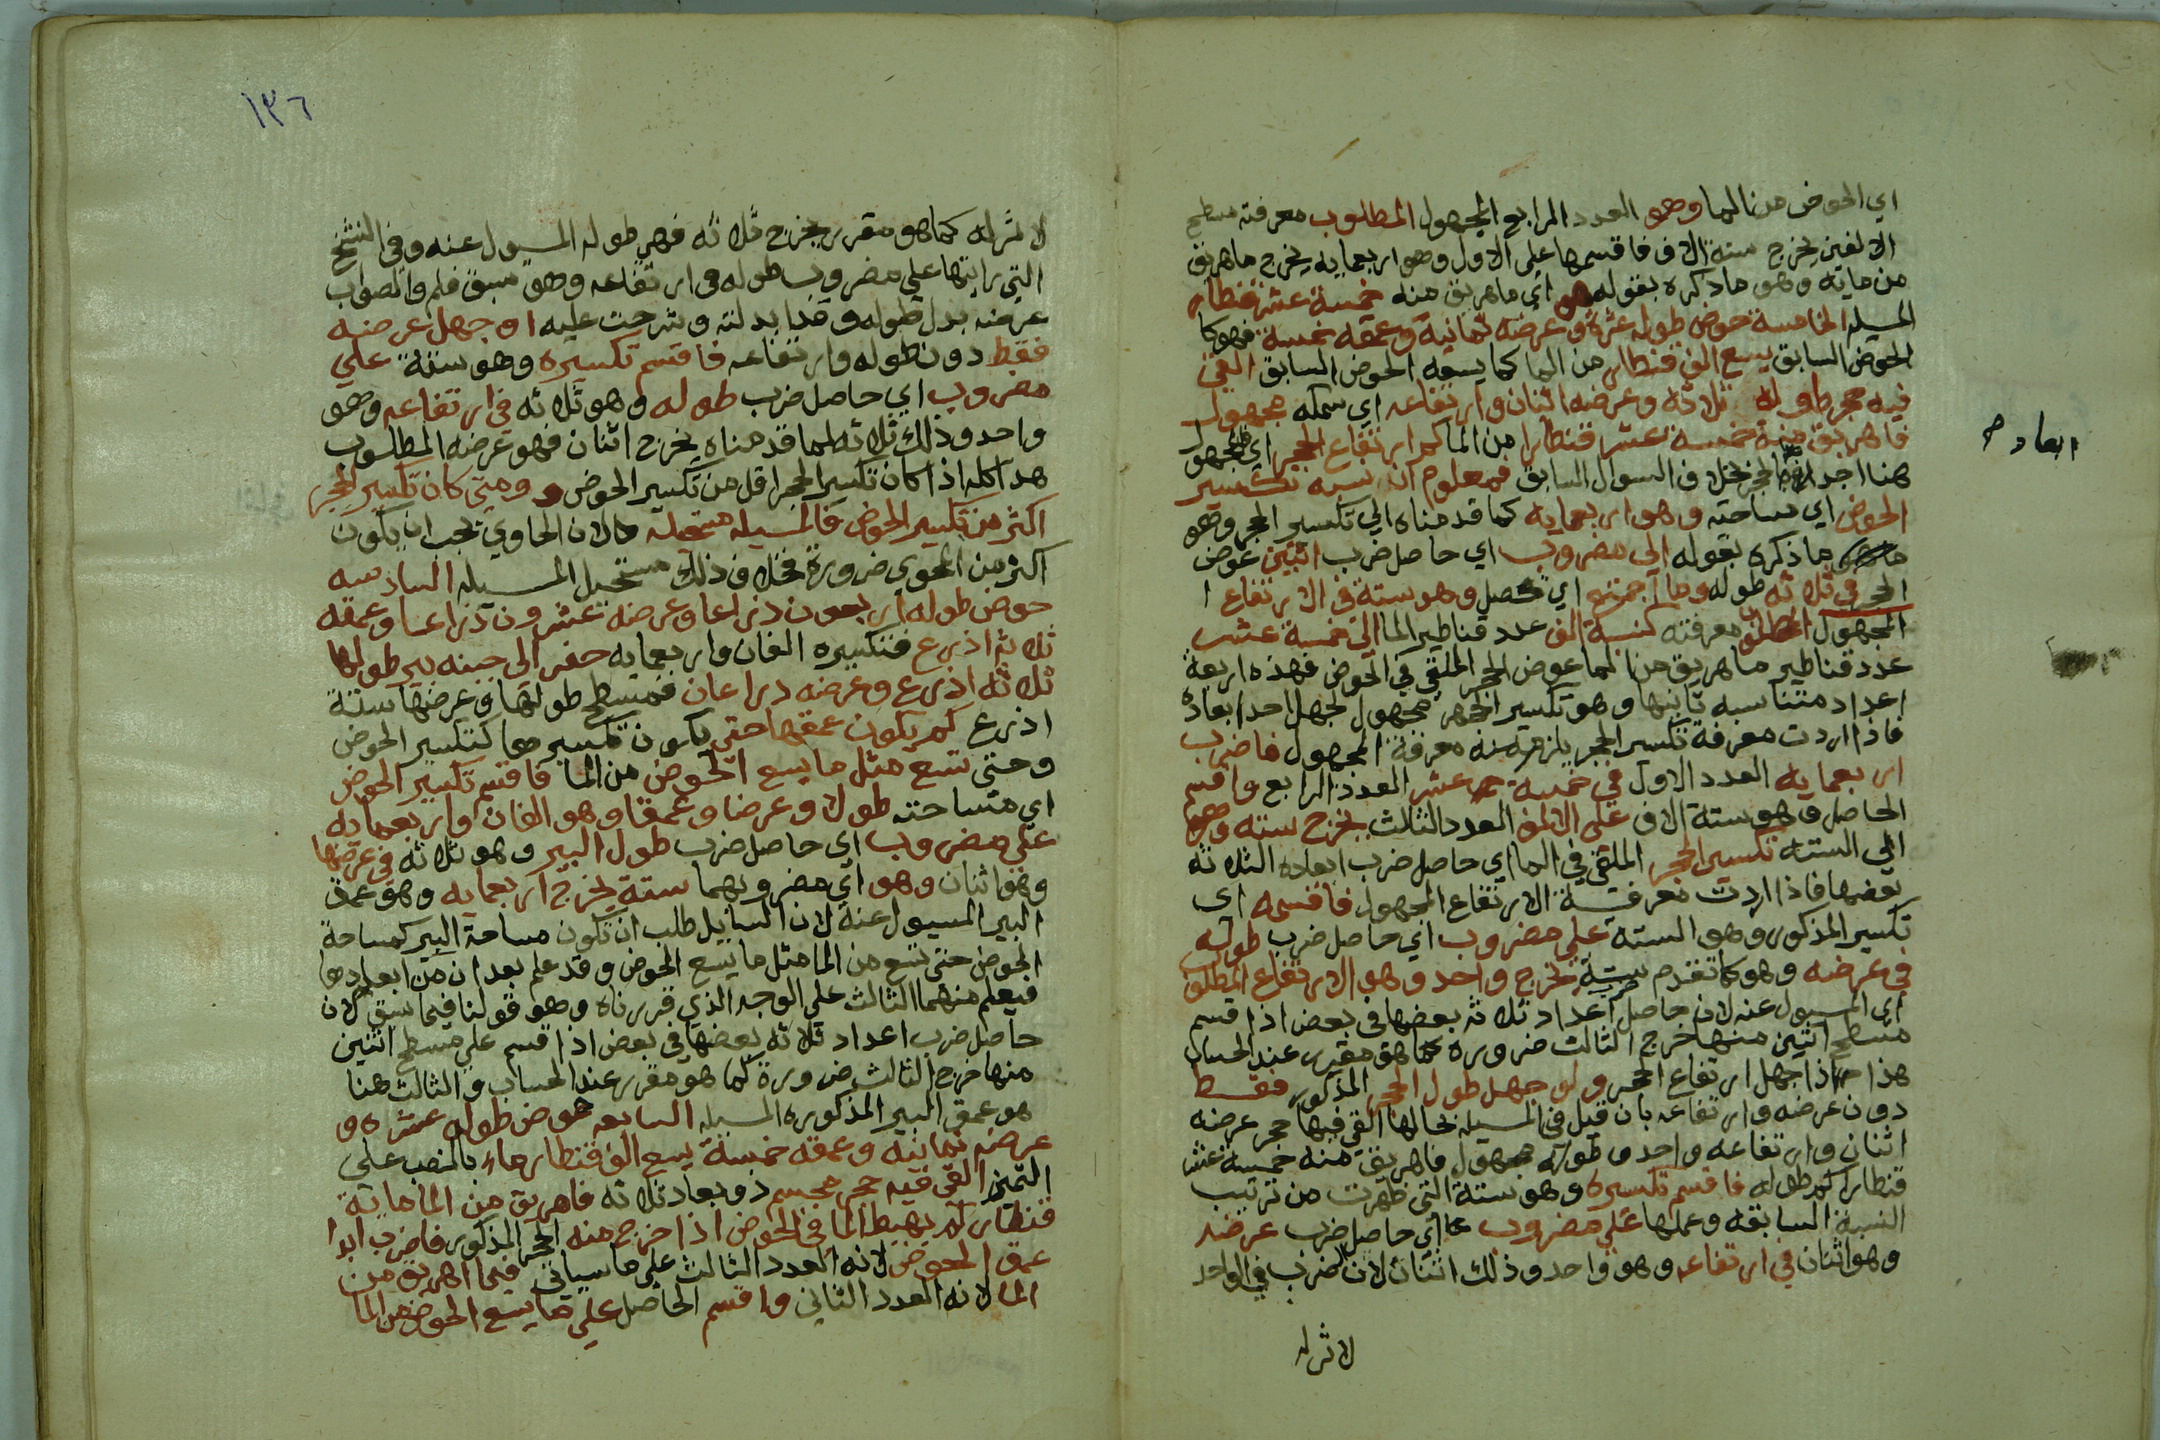 اي الحوض من الما وهو العدد الرابع المجهول المطلوب معرفته مسطح
الالفين يخرج ستة الاف فاقسمها على الاول وهو اربعمايه يخرج ماهريق
من مايه وهو ماذكره بقوله اي ماهريق منه خمسة عشر قنطار
المسيله الخامسة حوض طوله عشرة وعرضه ثمانية وعمقه خمسة فهو كا
الحوض السابق يسع الف قنطار من الما كما يسعه الحوض السابق القي
فيه حجر طوله ثلاثة وعرضه اثنان وارتفاعه اي سمكه مجهول
فاهريق منه خمسة عشر قنطارا من الما كم ارتفاع الحجر اي المجهول
هنا احد الحجر بخلاف السوال السابق فمعلوم ان نسبه تكسير
الحوض اي مساحته وهو اربعمايه كما قدمناه الي تكسير الحجر وهو
ماذكره بقوله الى مضروب اي حاصل ضرب اثنين عرض
الحجر في ثلاثه طوله وما اجتمع اي تحصل وهو ستة في الارتفاع ا
المجهول المطلوب معرفته كنسبة الف عدد قناطير الما الى خمسة عشر
عدد قناطير ماهريق من الما عوض الحجر الملقى في الحوض فهذه اربعة
اعداد متناسبه ثانيها وهو تكسير الحجر مجهول لجهل احد ابعاده
فاذا اردت معرفة تكسير الحجر يلزم منه معرفة المجهول فاضرب
اربعمايه العدد الاول في خمسة عشر العدد الرابع واقسم
الحاصل وهو ستة الاف على الالف العدد الثالث يخرج سته وهو
اي الستة تكسير الحجر الملقى في الما اي حاصل ضرب ابعاده الثلاثه
بعضها فاذا اردت معرفة الارتفاع المجهول فاقسمه اي
تكسير المذكور وهو الستة على مضروب اي حاصل ضرب طوله
في عرضه وهو كما تقدم ستة يخرج واحد وهو الارتفاع المطلوب
اي المسيول عنه لان حاصل ضرب اعداد ثلاثه بعضها في بعض اذا قسم
مسطح اثنين منها خرج الثالث ضرورة كما هو مقرر عند الحساب
هذا اذا جهل ارتفاع الحجر ولو جهل طول الحجر المذكور فقط
دون عرضه وارتفاعه بان قيل في المسيله بحالها القي فيها حجر عرضه
اثنان وارتفاعه واحد وطوله مجهول فاهريق منه خمسة عشر
قنطارا كم طوله فاقسم تكسيره وهو ستة التي ظهرت من ترتيب
النسبة السابقه وعملها على مضروب اي حاصل ضرب عرضه
وهو اثنان في ارتفاعه وهو واحد وذلك اثنان لان الضرب في الواحد
لا اثر له
ابعاد صح
١٣٦
لا اثر له كما هو مقرر يخرج ثلاثه فهو طوله المسيول عنه وفي النسخ
التي رايتها على مضروب طوله في ارتفاعه وهو سبق قلم والصواب
عرضه بدل طوله وقد ابدلته وشرحت عليه او جهل عرضه
فقط دون طوله وارتفاعه فاقسم تكسيره وهو ستة علي
مضروب اي حاصل ضرب طوله وهو ثلاثه في ارتفاعه وهو
واحد وذلك ثلاثه لما قدمناه يخرج اثنان فهو عرضه المطلوب
هذا كله اذا كان تكسير الحجر اقل من تكسير الحوض ومتى كان تكسير الحجر
اكثر من تكسير الحوض فالمسيله مستحيله لان الحاوي يجب ان يكون
اكثر من المحوي ضرورة فخلاف ذلك مستحيل المسيله السادسه
حوض طوله اربعون ذراعا وعرضه عشرون ذراعا وعمقه
ثلاثة اذرع فتكسيره الفان واربعمايه حفر الى جنبه بير طولها
ثلاثه اذرع وعرضه ذراعان فمسطح طولها في عرضها ستة
اذرع كم يكون عمقها حتى يكون تكسيرها كتكسير الحوض
وحتى تسع مثل مايسع الحوض من الما فاقسم تكسير الحوض
اي مساحته طولا وعرضا وعمقا وهو الفان واربعمايه
على مضروب اي حاصل ضرب طول البير وهو ثلاثة في عرضها
وهو اثنان وهو اي مضروبهما ستة يخرج اربعمايه وهو عمق
البير المسيول عنه لان السايل طلب ان تكون مساحة البير كمساحة
الحوض حتى تسع من الما مثل مايسع الحوض وقد علم بعدان من ابعادها
فيعلم منهما الثالث على الوجه الذي قررناه وهو قولنا فيما سبق لان
حاصل ضرب اعداد ثلاثه بعضها في بعض اذا قسم على مسطح اثنين
منها خرج الثالث ضرورة كما هو مقرر عند الحساب والثالث هنا
هو عمق البير المذكوره المسيله السابعه حوض طوله عشرة و
عرضه ثمانيه وعمقه خمسة يسع الف قنطار ماء بالنصب على
التمييز القي فيه حجر مجسم ذو ابعاد ثلاثه فاهريق من الما ماية
قنطار كم يهبط الما في الحوض اذا خرج منه الحجر المذكور فاضرب ابدا
عمق الحوض لانه العدد الثالث على ماسياتي فيما اهريق من
الما لانه العدد الثاني واقسم الحاصل على مايسع الحوض من الما